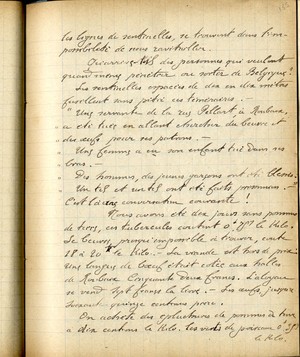 les lignes de sentinelles, se trouvent dans l'im-
possibilité de nous ravitailler.
Qu'arrive-t-il des personnes qui veulent
quand même pénétrer ou sortir de Belgique?
Les sentinelles espacées de dix en dix mètres
fusillent sans pitié ces téméraires. —
" Une servante de la rue Pellart, à Roubaix,
" a été tuée en allant chercher du beurre et
" des œufs pour ses patrons. —
" Une femme a eu son enfant tué dans ses
" bras. —
" Des hommes, des jeunes garçons ont été blessés.
" Un tel et un tel ont été faits prisonniers. —
C'est la conversation courante!
Nous avons été dix jours sans pommes
de terre, ces tubercules coûtent le Kilo.
Le beurre, presqu'impossible à trouver, coûte
18 à 20 le Kilo. — La viande est hors de prix
une langue de bœuf était cotée aux halles
de Roubaix Cinquante-deux francs. L'aloyau
se vend sept francs la livre. — Les œufs jusque
quinze centimes pièce.
On achète des épluchures de pommes de terre
à dix centimes le Kilo. Les têtes de poissons
le Kilo.